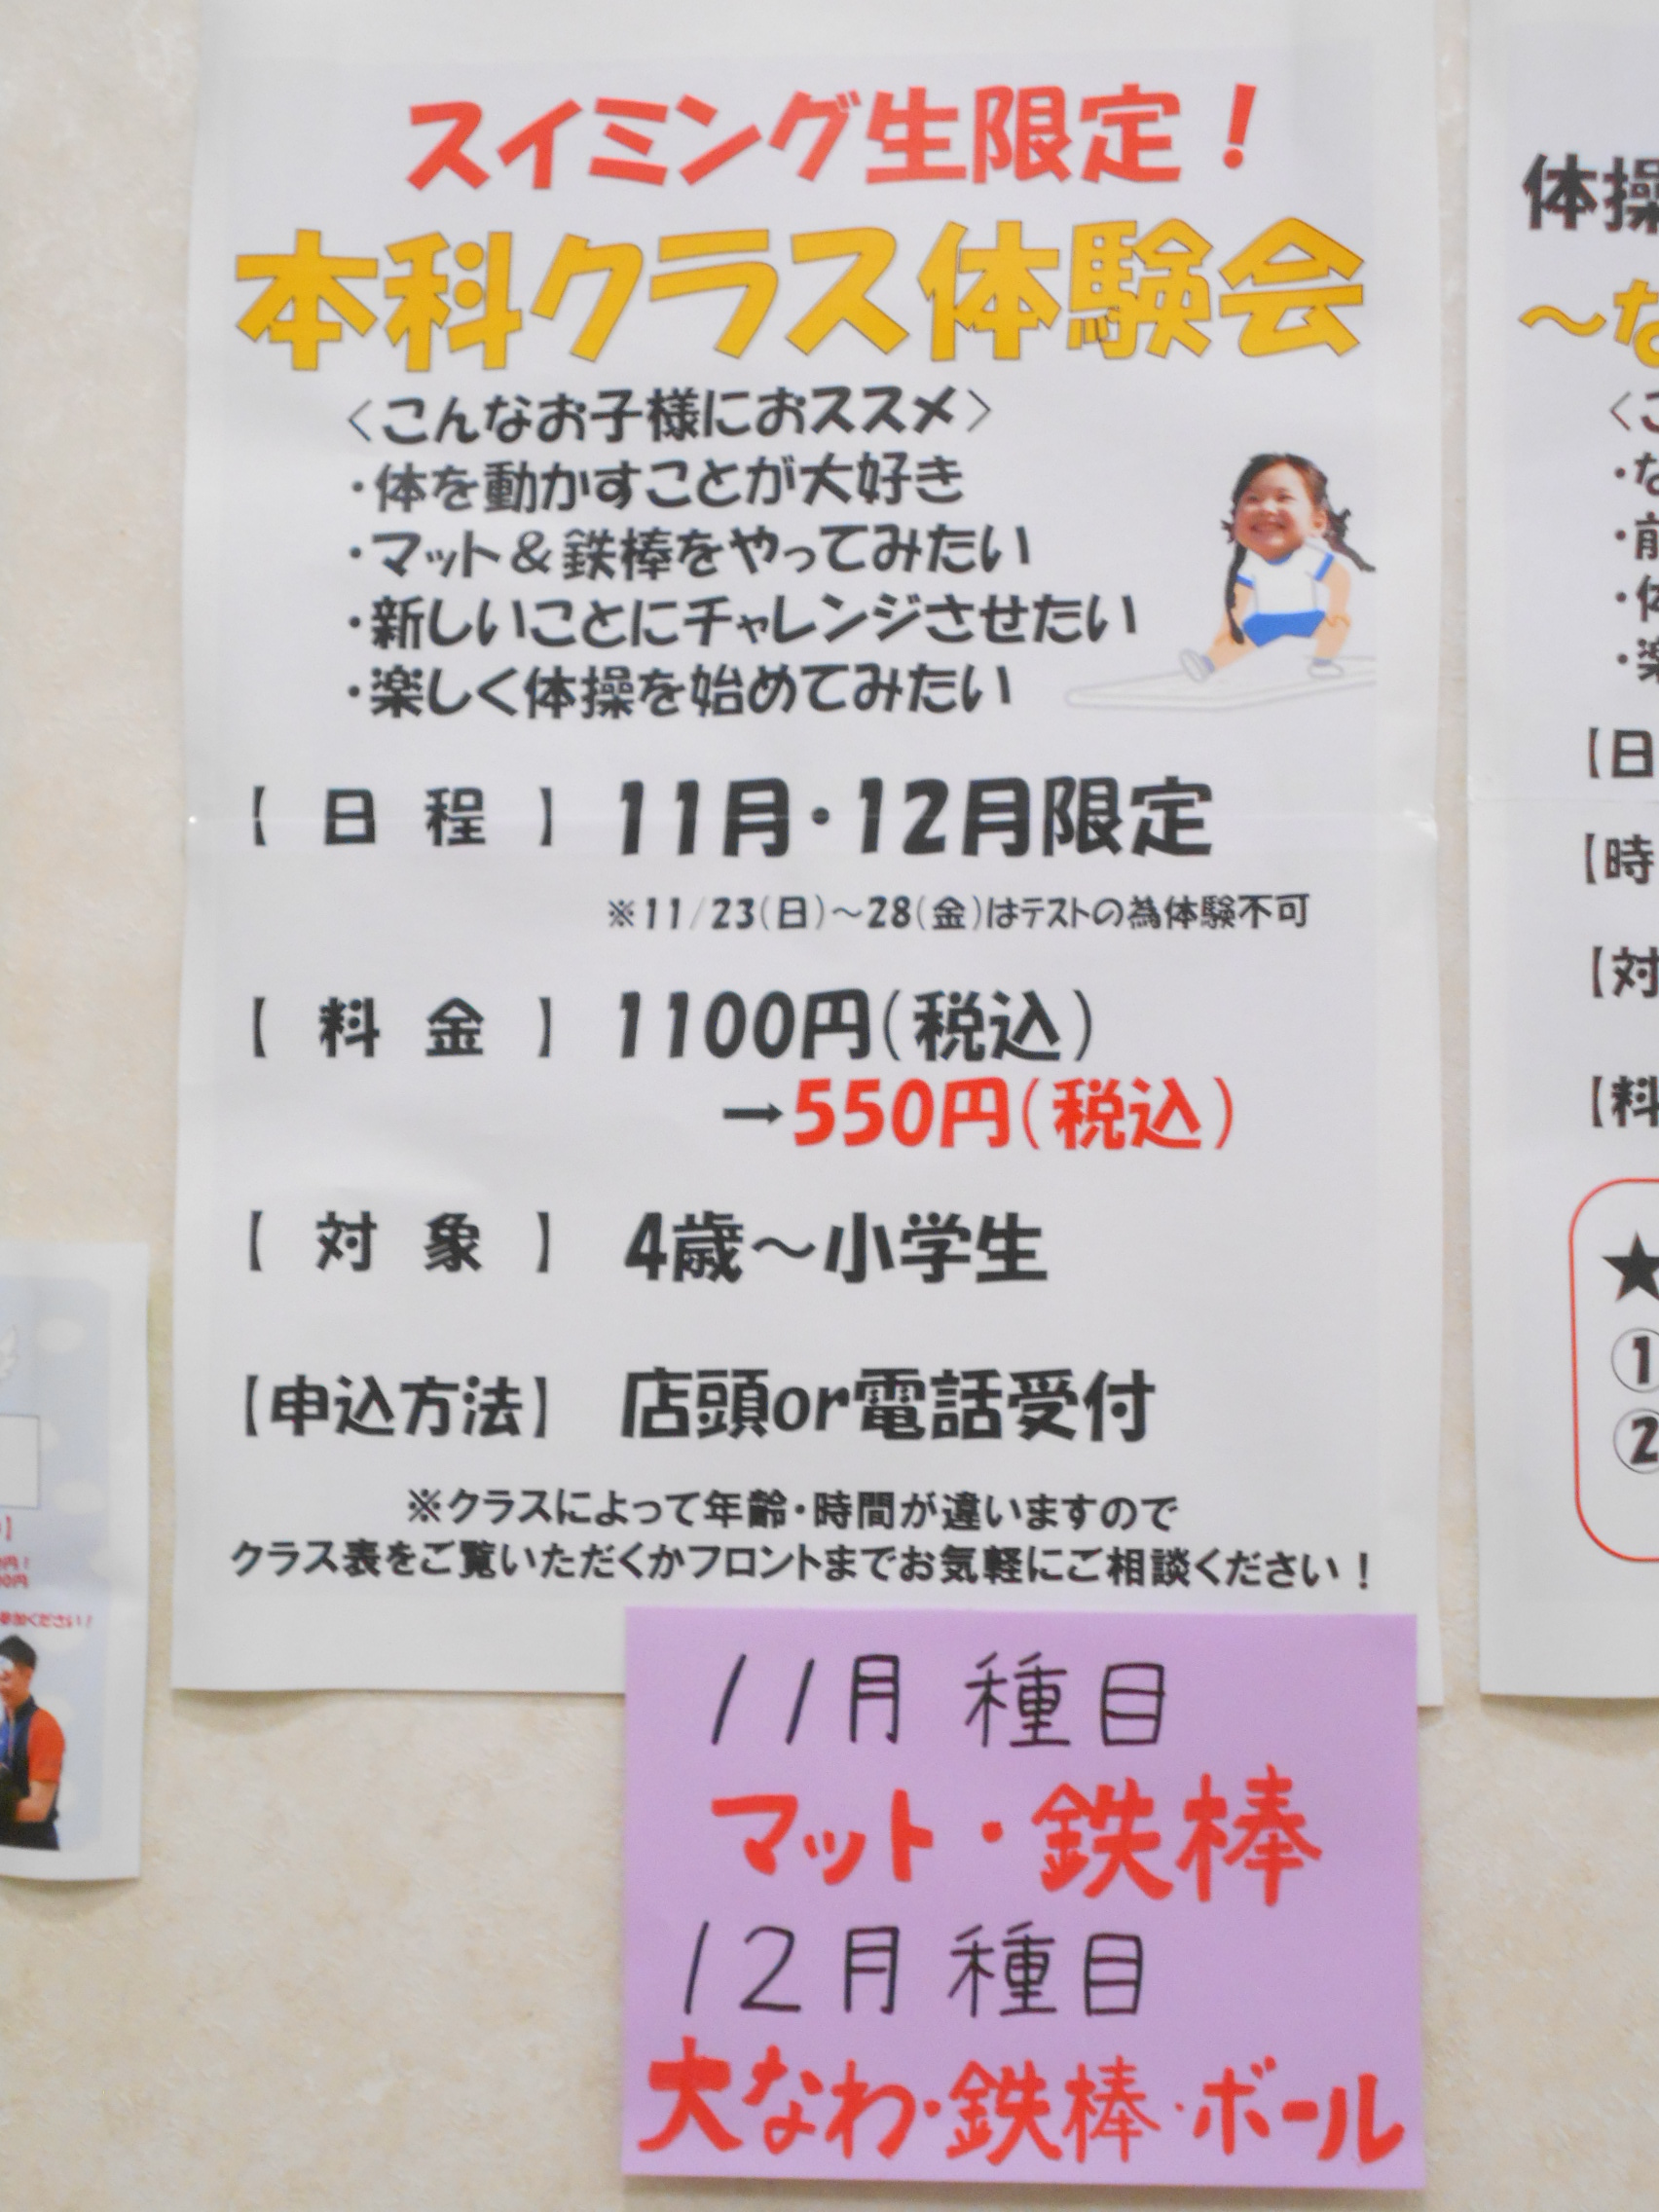 スイミング生限定！
本科クラス体験会
＜こんなお子様におススメ＞
・体を動かすことが大好き
・マット＆鉄棒をやってみたい
・新しいことにチャレンジさせたい
・楽しく体操を始めてみたい
【 日 程 】 11月・12月限定
※11/23(日)～28(金)はテストの為体験不可
【 料 金 】 1100円(税込)
→550円(税込)
【 対 象 】 4歳～小学生
【申込方法】 店頭or電話受付
※クラスによって年齢・時間が違いますので
クラス表をご覧いただくかフロントまでお気軽にご相談ください！
11月 種目
マット・鉄棒
12月 種目
大なわ・鉄棒・ボール
体操
～な
＜こ
・な
・前
・体
・楽
【日
【時
【対
【料
★
①
②
】
円！
00円
参加ください！